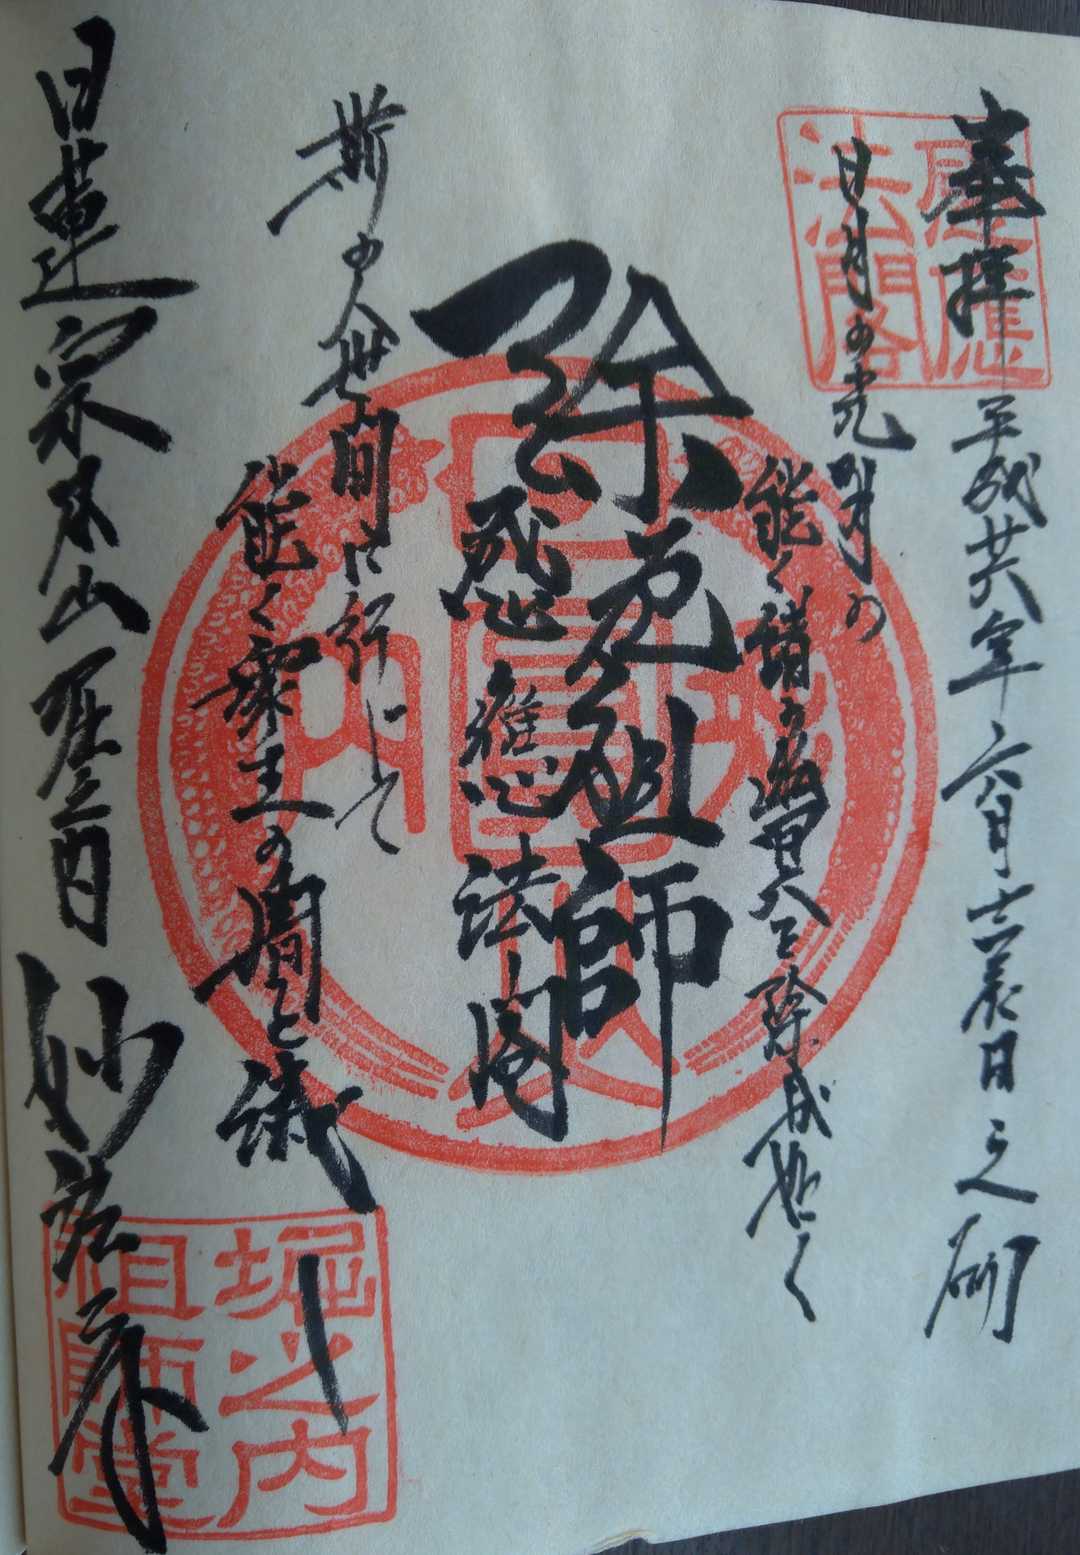 奉拝 平成廿六年六月
日月の光明の
能く諸の幽冥を除くが如く
除厄祖師
感應法閣
斯の人世間に行じて
能く衆生の闇を滅し
日蓮宗本山堀之内 妙法寺
感應
法閣
日圓山
堀内
堀之内
祖師堂